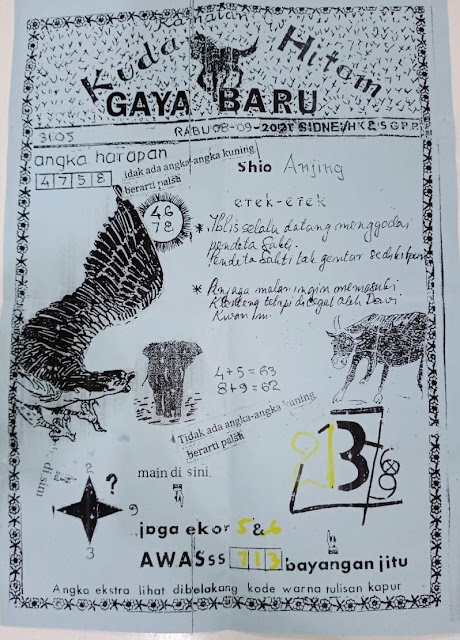 Ramalan
Kuda Hitam
GAYA BARU
3105
RABU 08-09-2021 SIDNEI/HK&SGPR
angka harapan
4758
tidak ada angka-angka kuning
berarti palsu
Shio Anjing
erek-erek
46
78
* Iblis selalu datang menggodai
pendeta Sakti.
Pendeta Sakti tak gentar sedikitpun
* Penjaga malam ingin memasuki
Klenteng tetapi dicegat oleh Dewi
Kwan Im.
4+5=63
8+9=62
Tidak ada angka-angka kuning
berarti palsu
main di sini
2
?
9
3
13
69
jaga ekor 5&6
AWASss 713 bayangan jitu
Angka ekstra lihat dibelakang kode warna tulisan kapur